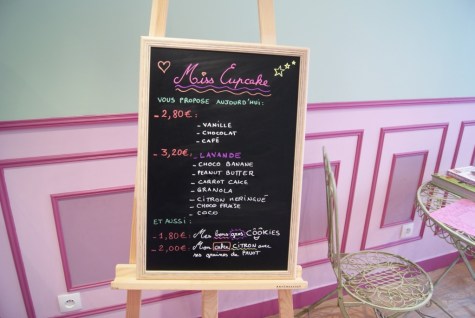 Miss Cupcake
VOUS PROPOSE AUJOURD'HUI:
- 2,80€:
- VANILLE
- CHOCOLAT
- CAFÉ
- 3,20€: - LAVANDE
- CHOCO BANANE
- PEANUT BUTTER
- CARROT CAKE
- GRANOLA
- CITRON MERINGUÉ
- CHOCO FRAISE
- COCO
ET AUSSI:
- 1,80€: Mes bons gros COOKIES
- 2,00€: Mon cake CITRON avec
ses graines de PAVOT